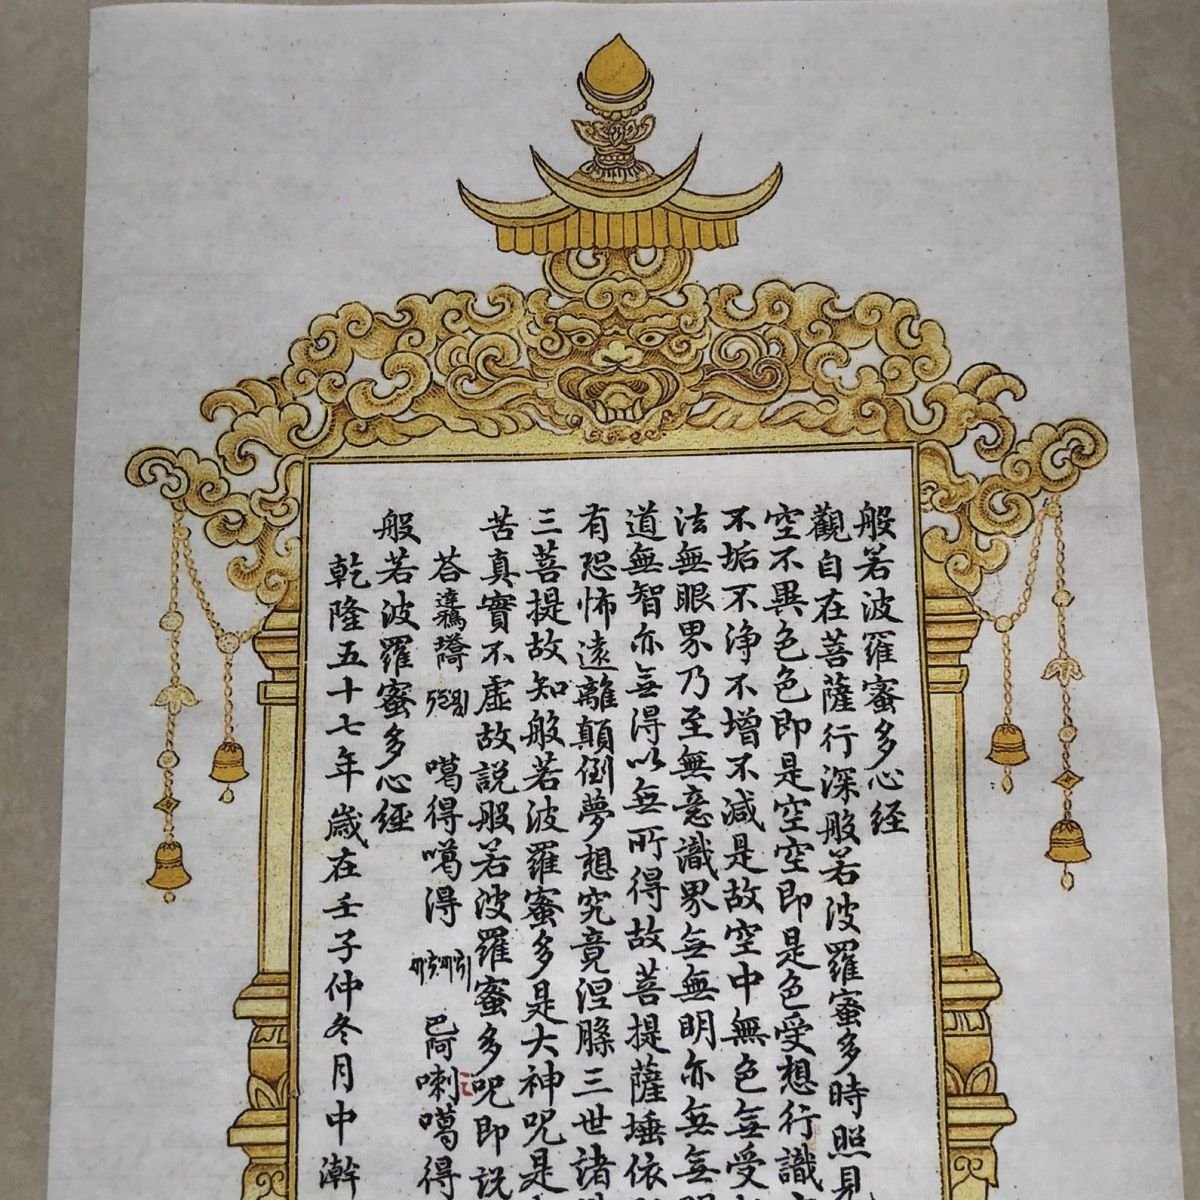 般若波羅蜜多心経
觀自在菩薩行深般若波羅蜜多時照見
空不異色色即是空空即是色受想行識
不垢不浄不增不减是故空中無色無受
法無眼界乃至無意識界無無明亦無無明
道無智亦無得以無所得故菩提薩埵依
有恐怖遠離顛倒夢想究竟涅槃三世諸
三菩提故知般若波羅蜜多是大神呪是
苦真實不虛故説般若波羅蜜多呪即説
荅達 噶得噶得 巴阿喇噶得
般若波羅蜜多心經
乾隆五十七年歲在壬子仲冬月中澣